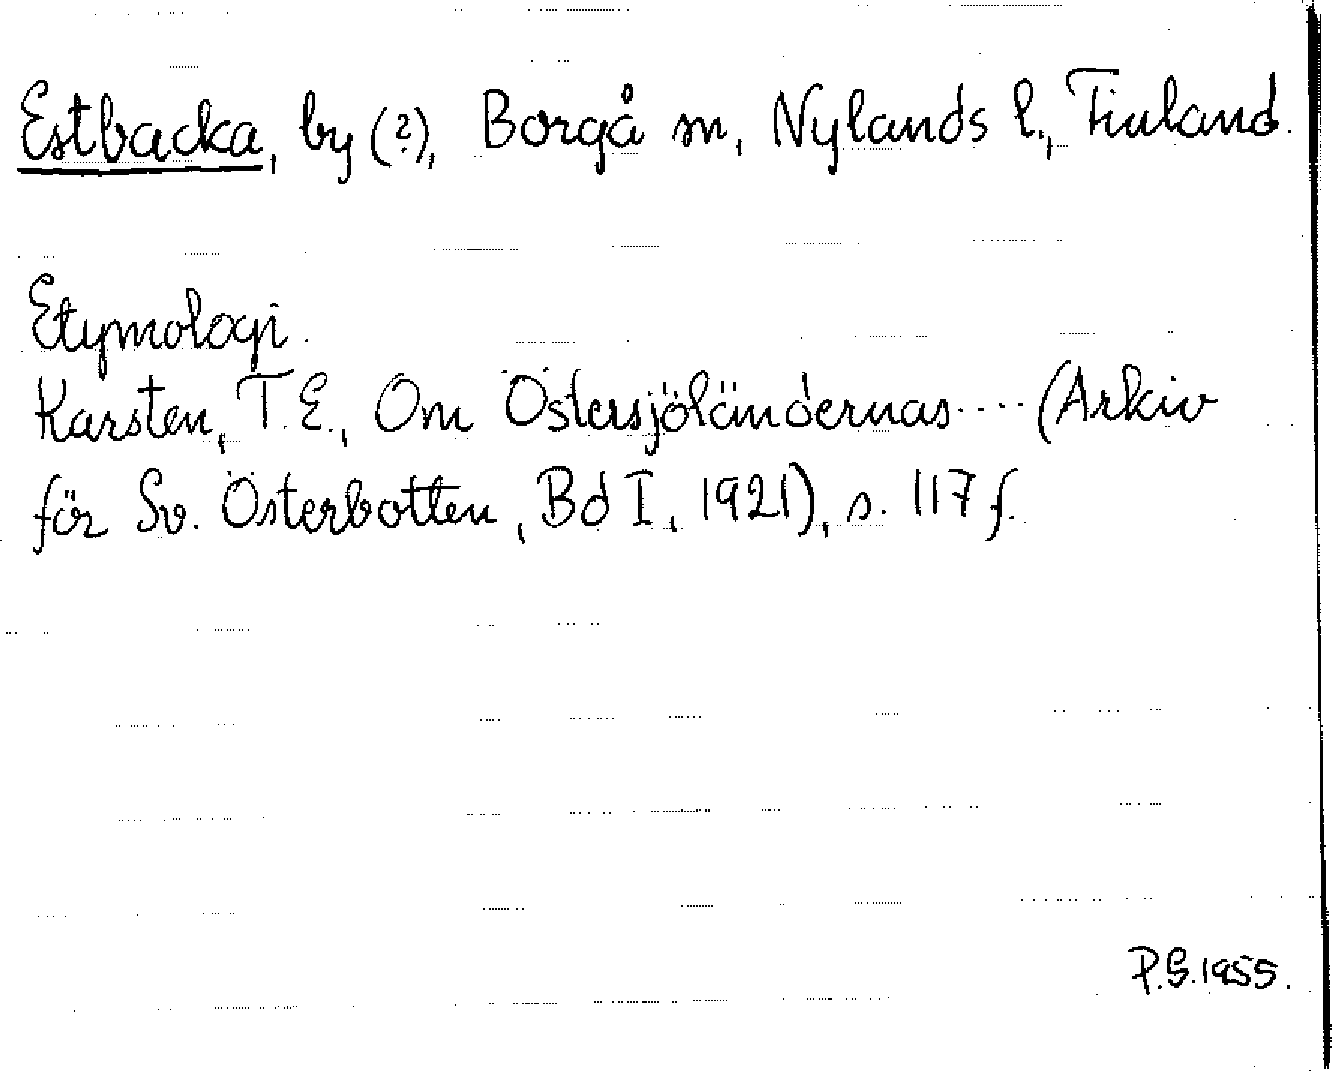 Estbacka, by (?), Borgå sn, Nylands l., Finland.
Etymologi.
Karsten, T.E., Om Östersjöländernas.... (Arkiv
för Sv. Österbotten, Bd I, 1921), s. 117 f.
P.S.1955.